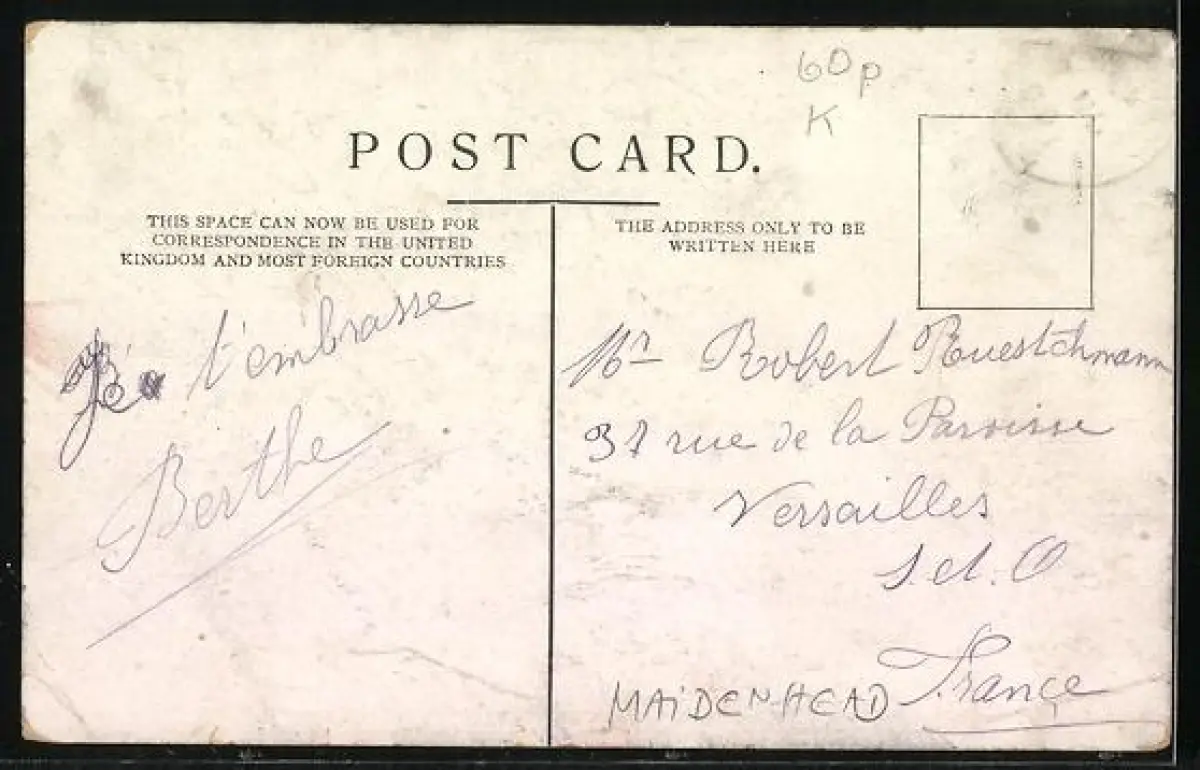 60p
K
POST CARD.
THIS SPACE CAN NOW BE USED FOR
CORRESPONDENCE IN THE UNITED
KINGDOM AND MOST FOREIGN COUNTRIES
THE ADDRESS ONLY TO BE
WRITTEN HERE
Je t'embrasse
Berthe
Mr Robert Ruestchmann
37 rue de la Paroisse
Versailles
S. et. O
France
MAIDENHEAD